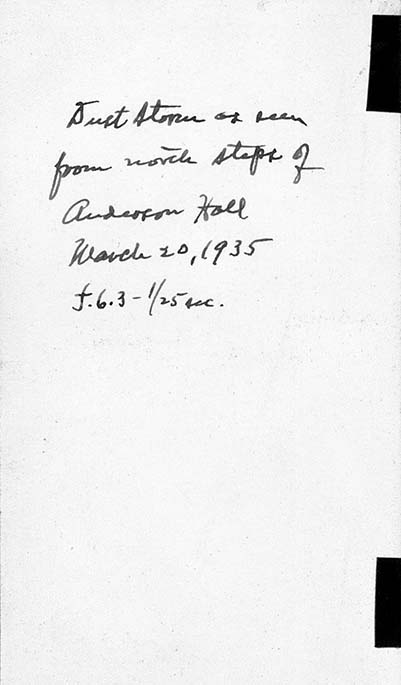 Dust Storm as seen
from north steps of
Anderson Hall
March 20, 1935
f.6.3 - 1/25 sec.